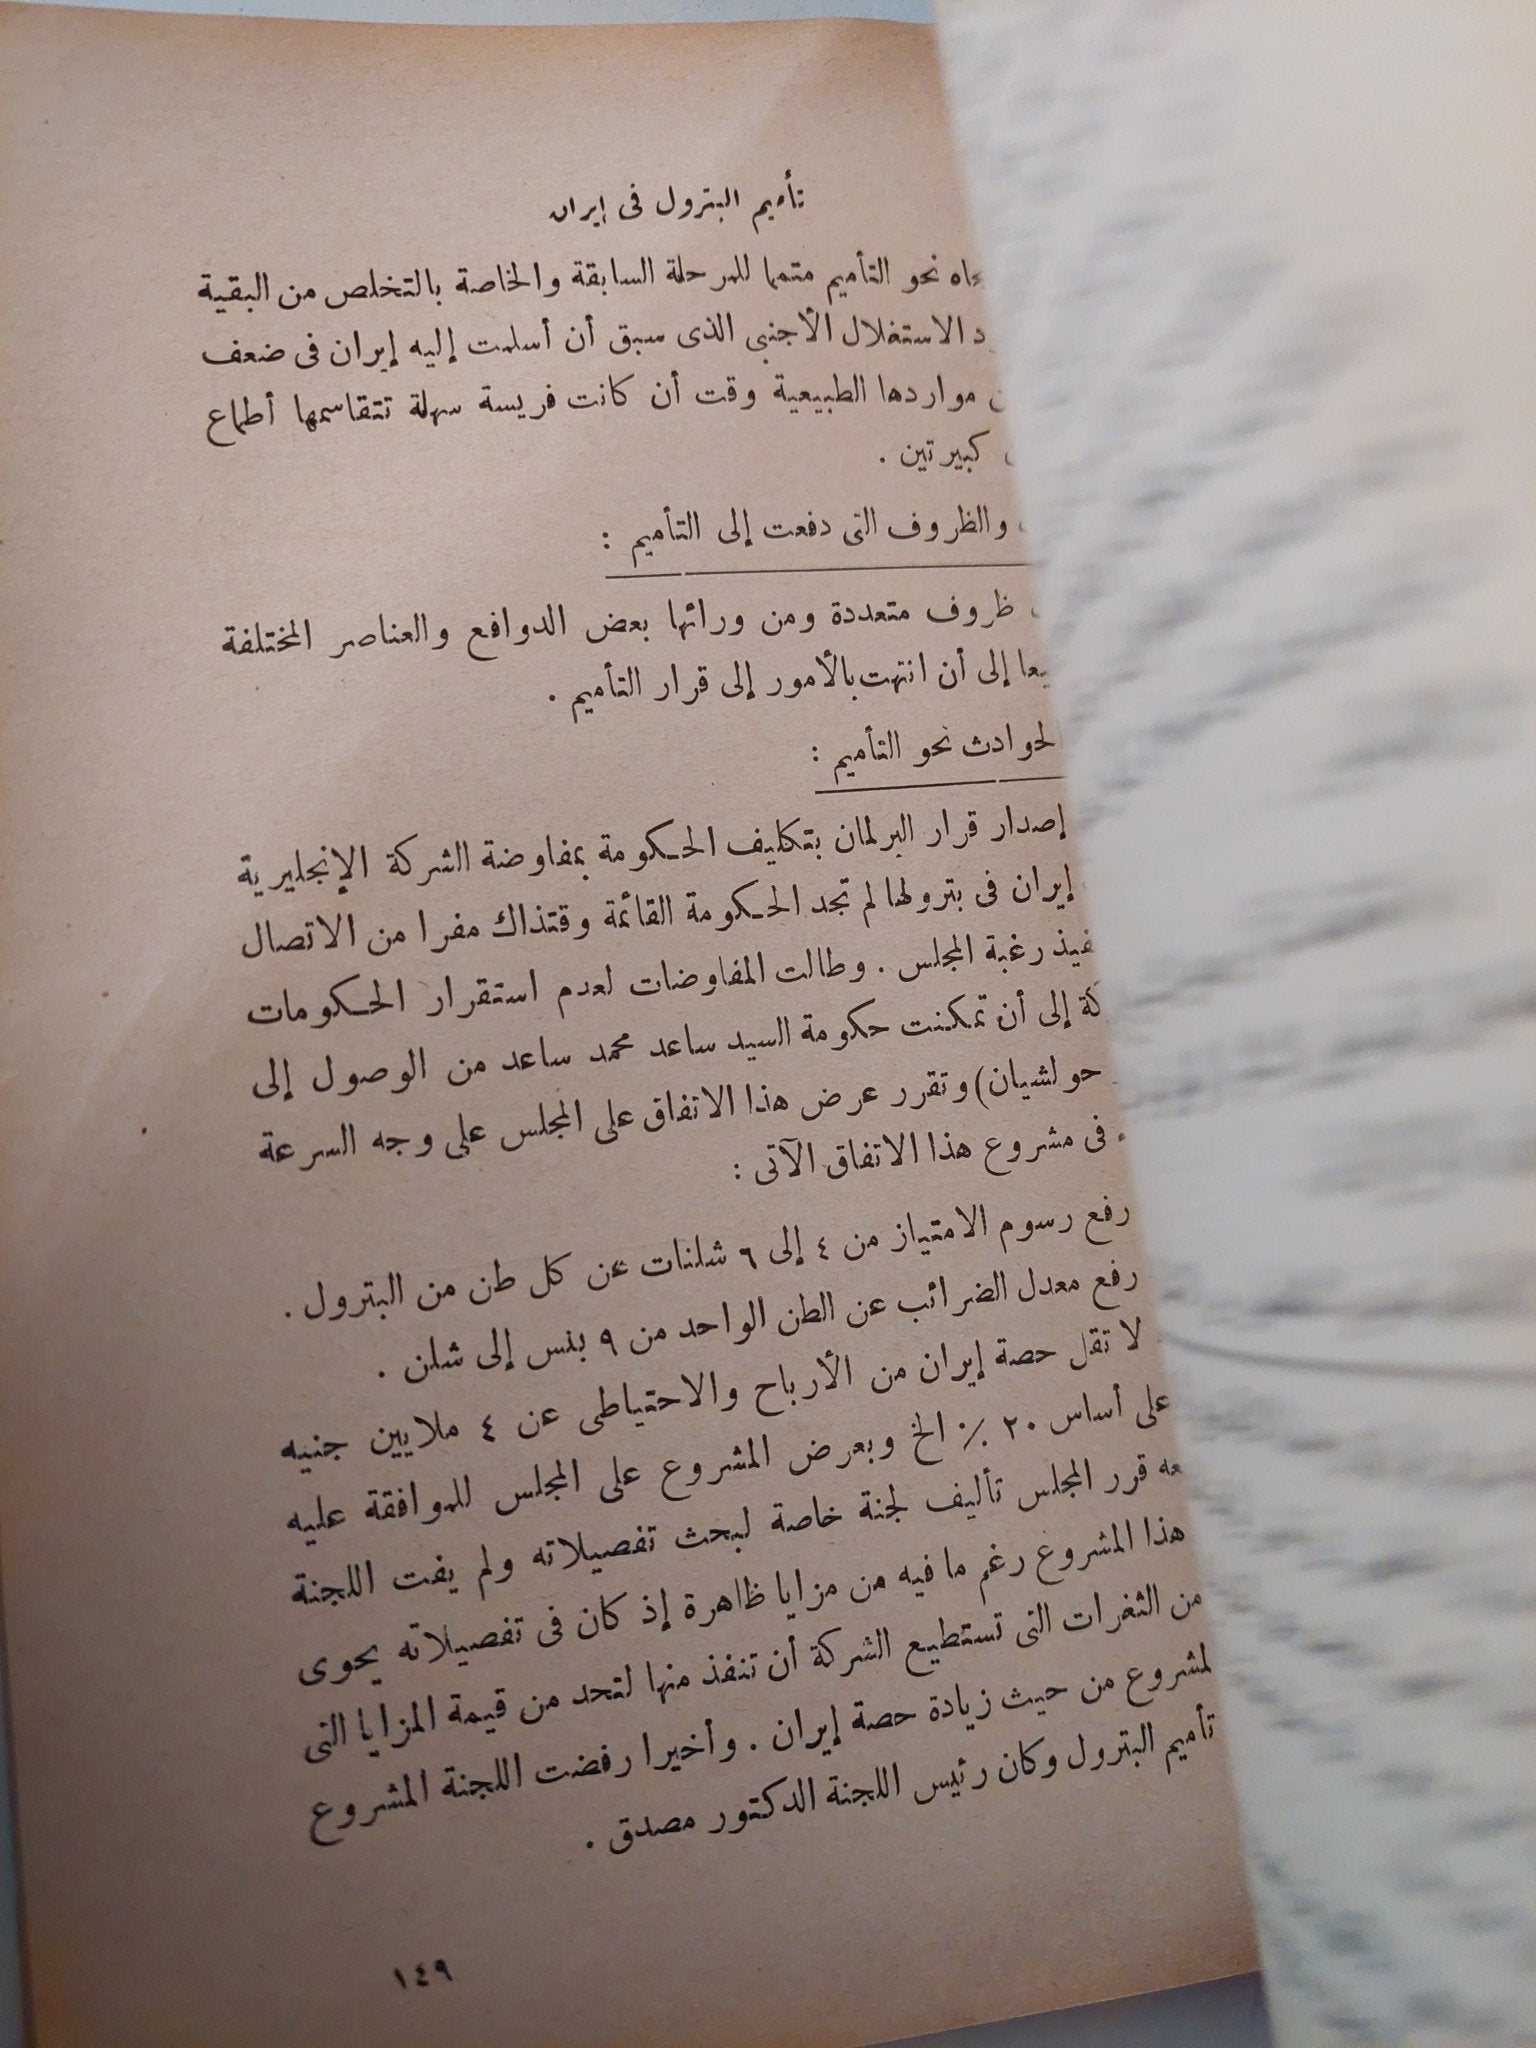 تأميم البترول فى إيران
نحو التأميم متمما للمرحلة السابقة والخاصة بالتخلص من البقية
الاستغلال الأجنبى الذى سبق أن أسلمت إليه إيران فى ضعف
مواردها الطبيعية وقت أن كانت فريسة سهلة تتقاسمها أطماع
كبيرتين .
والظروف التى دفعت إلى التأميم :
ظروف متعددة ومن ورائها بعض الدوافع والعناصر المختلفة
إلى أن انتهت بالأمور إلى قرار التأميم .
الحوادث نحو التأميم :
إصدار قرار البرلمان بتكليف الحكومة بمفاوضة الشركة الإنجليزية
إيران فى بترولها لم تجد الحكومة القائمة وقتذاك مفرا من الاتصال
رغبة المجلس . وطالت المفاوضات لعدم استقرار الحكومات
إلى أن تمكنت حكومة السيد ساعد محمد ساعد من الوصول إلى
حولشيان) وتقرر عرض هذا الاتفاق على المجلس على وجه السرعة
فى مشروع هذا الاتفاق الآتى :
رفع رسوم الامتياز من ٤ إلى ٦ شلنات عن كل طن من البترول .
رفع معدل الضرائب عن الطن الواحد من ٩ بنس إلى شلن .
لا تقل حصة إيران من الأرباح والاحتياطى عن ٤ ملايين جنيه
على أساس ٢٠ ٪ الخ وبعرض المشروع على المجلس للموافقة عليه
قرر المجلس تأليف لجنة خاصة لبحث تفصيلاته ولم يفت اللجنة
هذا المشروع رغم ما فيه من مزايا ظاهرة إذ كان فى تفصيلاته يحوى
من الثغرات التى تستطيع الشركة أن تنفذ منها لتحد من قيمة المزايا التى
لمشروع من حيث زيادة حصة إيران . وأخيرا رفضت اللجنة المشروع
تأميم البترول وكان رئيس اللجنة الدكتور مصدق .
١٤٩